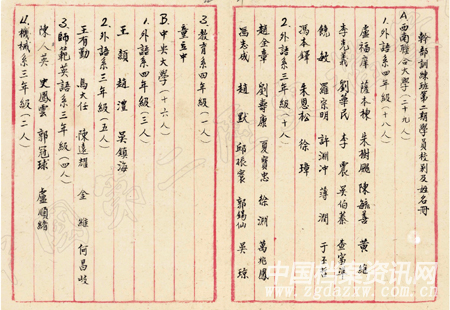 幹部訓練班第二期學員校别及姓名册
A.西南聯合大學(二十九人)
1.外語系四年級(十八人)
盧福庠 薩本棟 朱樹颺 陳毓善 黃維
李光義 劉華民 李震 吳伯蓁
饒敏 羅宗明 許淵冲 薄潤 于丕哲
馮本鐸 朱恩松 徐璋
2.外語系三年級(十人)
趙全章 劉壽康 夏寶忠 徐淵 萬兆鳳
馮志成 趙默 邱振寰 郭錫仙 吳瓊
3.教育系四年級(一人)
章立中
B.中央大學(十六人)
1.外語系四年級(三人)
王頡 趙澧 吳鎮海
2.外語系三年級(五人)
王有勤 馬大任 陳遠耀 金維 何昌岐
3.師範英語系三年級(四人)
陳人英 史鳳雲 郭冠球 盧順緒
4.機械系三年級(二人)
中国档案资讯网
www.zgdazxw.com.cn